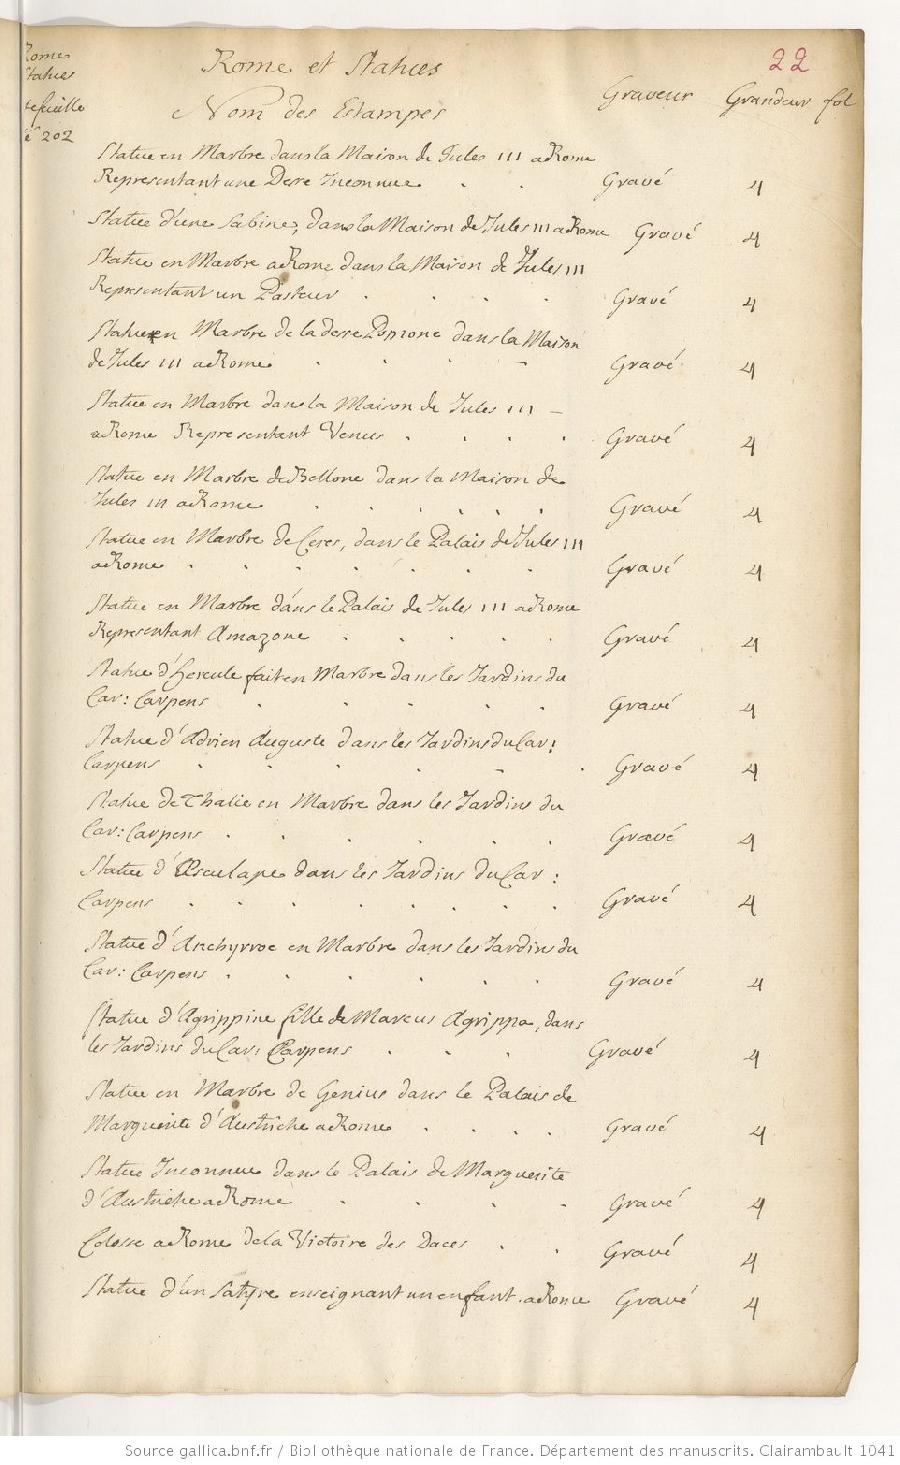 Rome
Statues
tefeuille
é 202
Rome et Statues
22
Nom des Estampes Graveur Grandeur fol
Statue en Marbre dans la Maison de Jules III a Rome
Representant une Deesse Inconnue . . Gravé 4
Statue d'une Sabine, dans la Maison de Jules III a Rome Gravé 4
Statue en Marbre a Rome dans la Maison de Jules III
Representant un Pasteur . . . . Gravé 4
Statue en Marbre de la deesse Pomone dans la Maison
de Jules III a Rome . . . . Gravé 4
Statue en Marbre dans la Maison de Jules III –
a Rome Representant Venus . . . . Gravé 4
Statue en Marbre de Bellone dans la Maison de
Jules III a Rome . . . . . . Gravé 4
Statue en Marbre de Ceres, dans le Palais de Jules III
a Rome . . . . . . . Gravé 4
Statue en Marbre dans le Palais de Jules III a Rome
Representant Amazone . . . . Gravé 4
Statue d'Hercule fait en Marbre dans les Jardins du
Car: Carpens . . . . . Gravé 4
Statue d'Adrien Auguste dans les Jardins du Car:
Carpens . . . . . . Gravé 4
Statue de Thalie en Marbre dans les Jardins du
Car: Carpens . . . . . . Gravé 4
Statue d'Æsculape dans les Jardins du Car:
Carpens . . . . . . . . Gravé 4
Statue d'Anchyrroe en Marbre dans les Jardins du
Car: Carpens . . . . . . Gravé 4
Statue d'Agrippine fille de Marcus Agrippa, dans
les Jardins du Car: Carpens . . . Gravé 4
Statue en Marbre de Genius dans le Palais de
Marguerite d'Austriche a Rome . . . . Gravé 4
Statue Inconnue dans le Palais de Marguerite
d'Austriche a Rome . . . . Gravé 4
Colosse a Rome de la Victoire des Daces . . Gravé 4
Statue d'un Satyre enseignant un enfant. a Rome Gravé 4
Source gallica.bnf.fr / Bibliothèque nationale de France. Département des manuscrits. Clairambault 1041